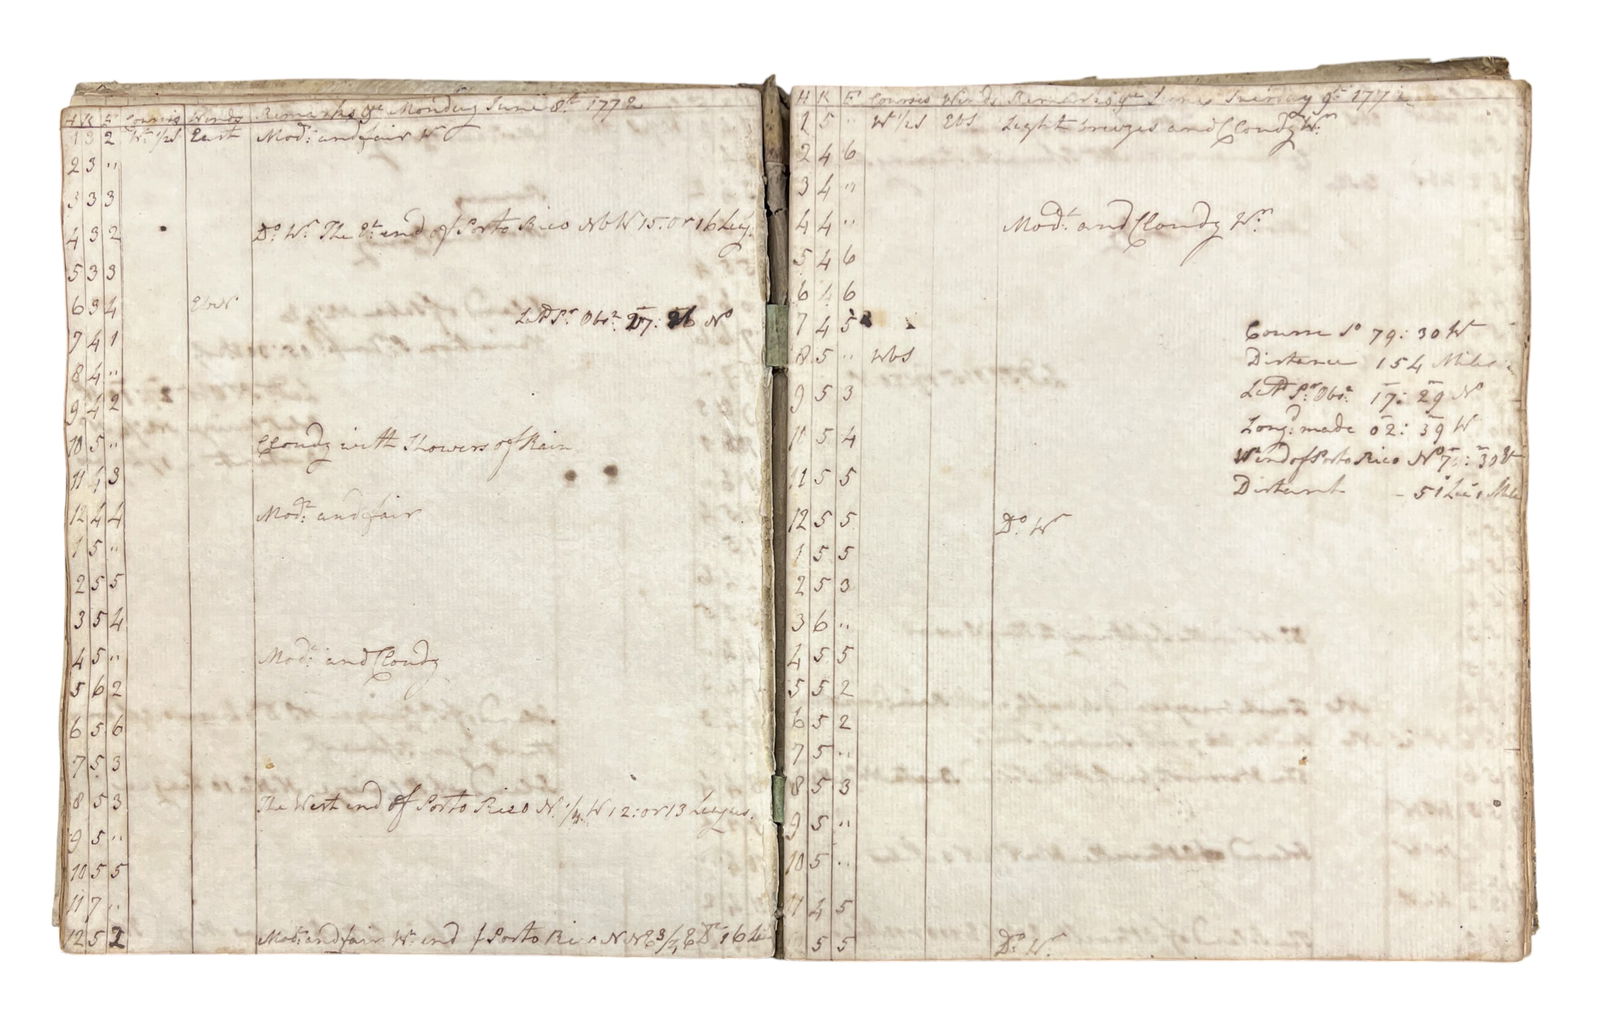 H K F Courses Winds Remarks &c Monday June 8th 1772
1 3 2 Wt 1/2 S East Modt and fair Wr
2 3 "
3 3 3
4 3 2 Do Wr The Et end of Porto Rico NbW 15: or 16 Leag
5 3 3
6 3 4 EbN
Latd Pr Obsn 17: 26 No
7 4 1
8 4 "
9 4 2
10 5 " Cloudy with Showers of Rain
11 4 3
12 4 4 Modt and fair
1 5 "
2 5 5
3 5 4
4 5 " Modt and Cloudy
5 6 2
6 5 6
7 5 3
8 5 3 The West end of Porto Rico N 1/4 W 12: or 13 Leagues.
9 5 "
10 5 5
11 7 "
12 5 2 Modt and fair Wt end of Porto Rico 16
H K F Courses Winds Remarks &c June Tuesday 9th 1772
1 5 " Wt 1/2 S EbS Light breezes and Cloudy Wr
2 4 6
3 4 "
4 4 " Modt and Cloudy Wr
5 4 6
6 4 6
7 4 5 Course So 79: 30 Wt
8 5 " WbS Distance 154 Miles
9 5 3 Latd Pr Obsn 17: 29 No
10 5 4 Longd made 02: 39 W
Wt end of Porto Rico No 30 Et
11 5 5 Distant - 51 Lea 1 Mile
12 5 5 Do Wr
1 5 5
2 5 3
3 6 "
4 5 5
5 5 2
6 5 2
7 5 "
8 5 3
9 5 "
10 5 "
11 4 5
5 5 Do Wr